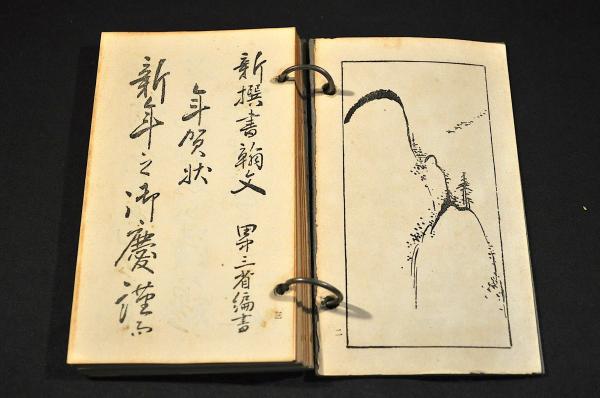 新撰書翰文 田中三省編書
年賀状
新年之御慶謹而
二